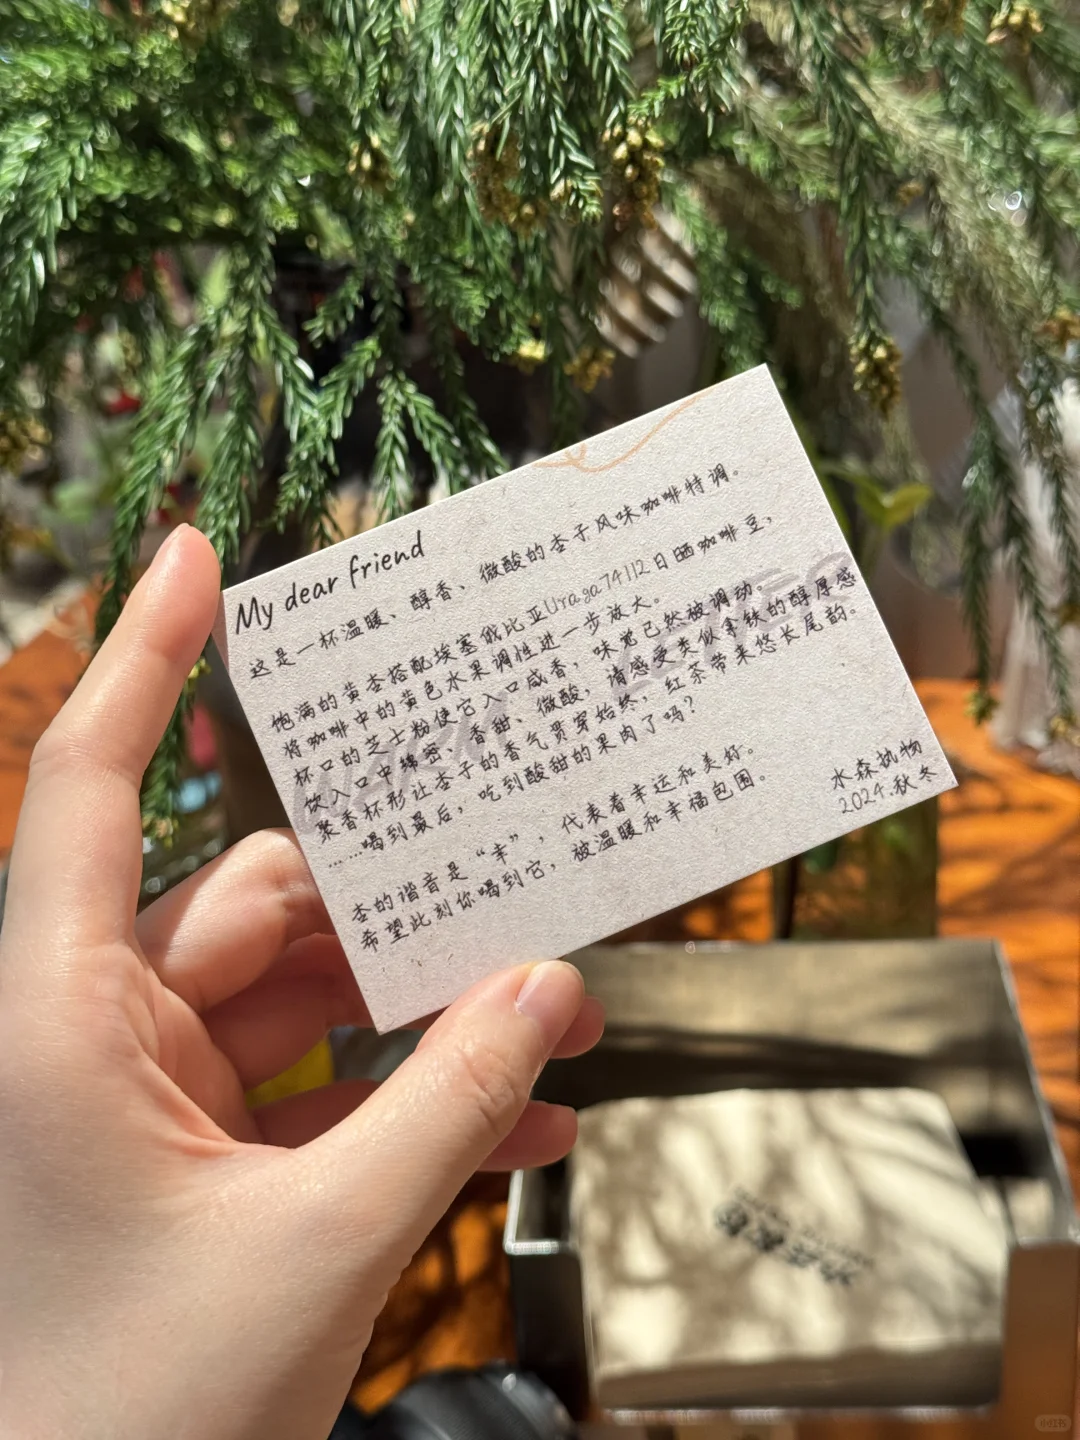 My dear friend
这是一杯温暖、醇香、微酸的杏子风味咖啡特调。
饱满的黄杏搭配埃塞俄比亚Uraga74112日晒咖啡豆，
将咖啡中的黄色水果调性进一步放大。
杯口的芝士粉使它入口咸香，味觉已然被调动，
饮入口中绵密、香甜、微酸，请感受类似拿铁的醇厚感
聚香杯形让杏子的香气贯穿始终，红茶带来悠长尾韵。
……喝到最后，吃到酸甜的果肉了吗？
杏的谐音是“幸”，代表着幸运和美好。
希望此刻你喝到它，被温暖和幸福包围。
水森执物
2024.秋冬
小红书